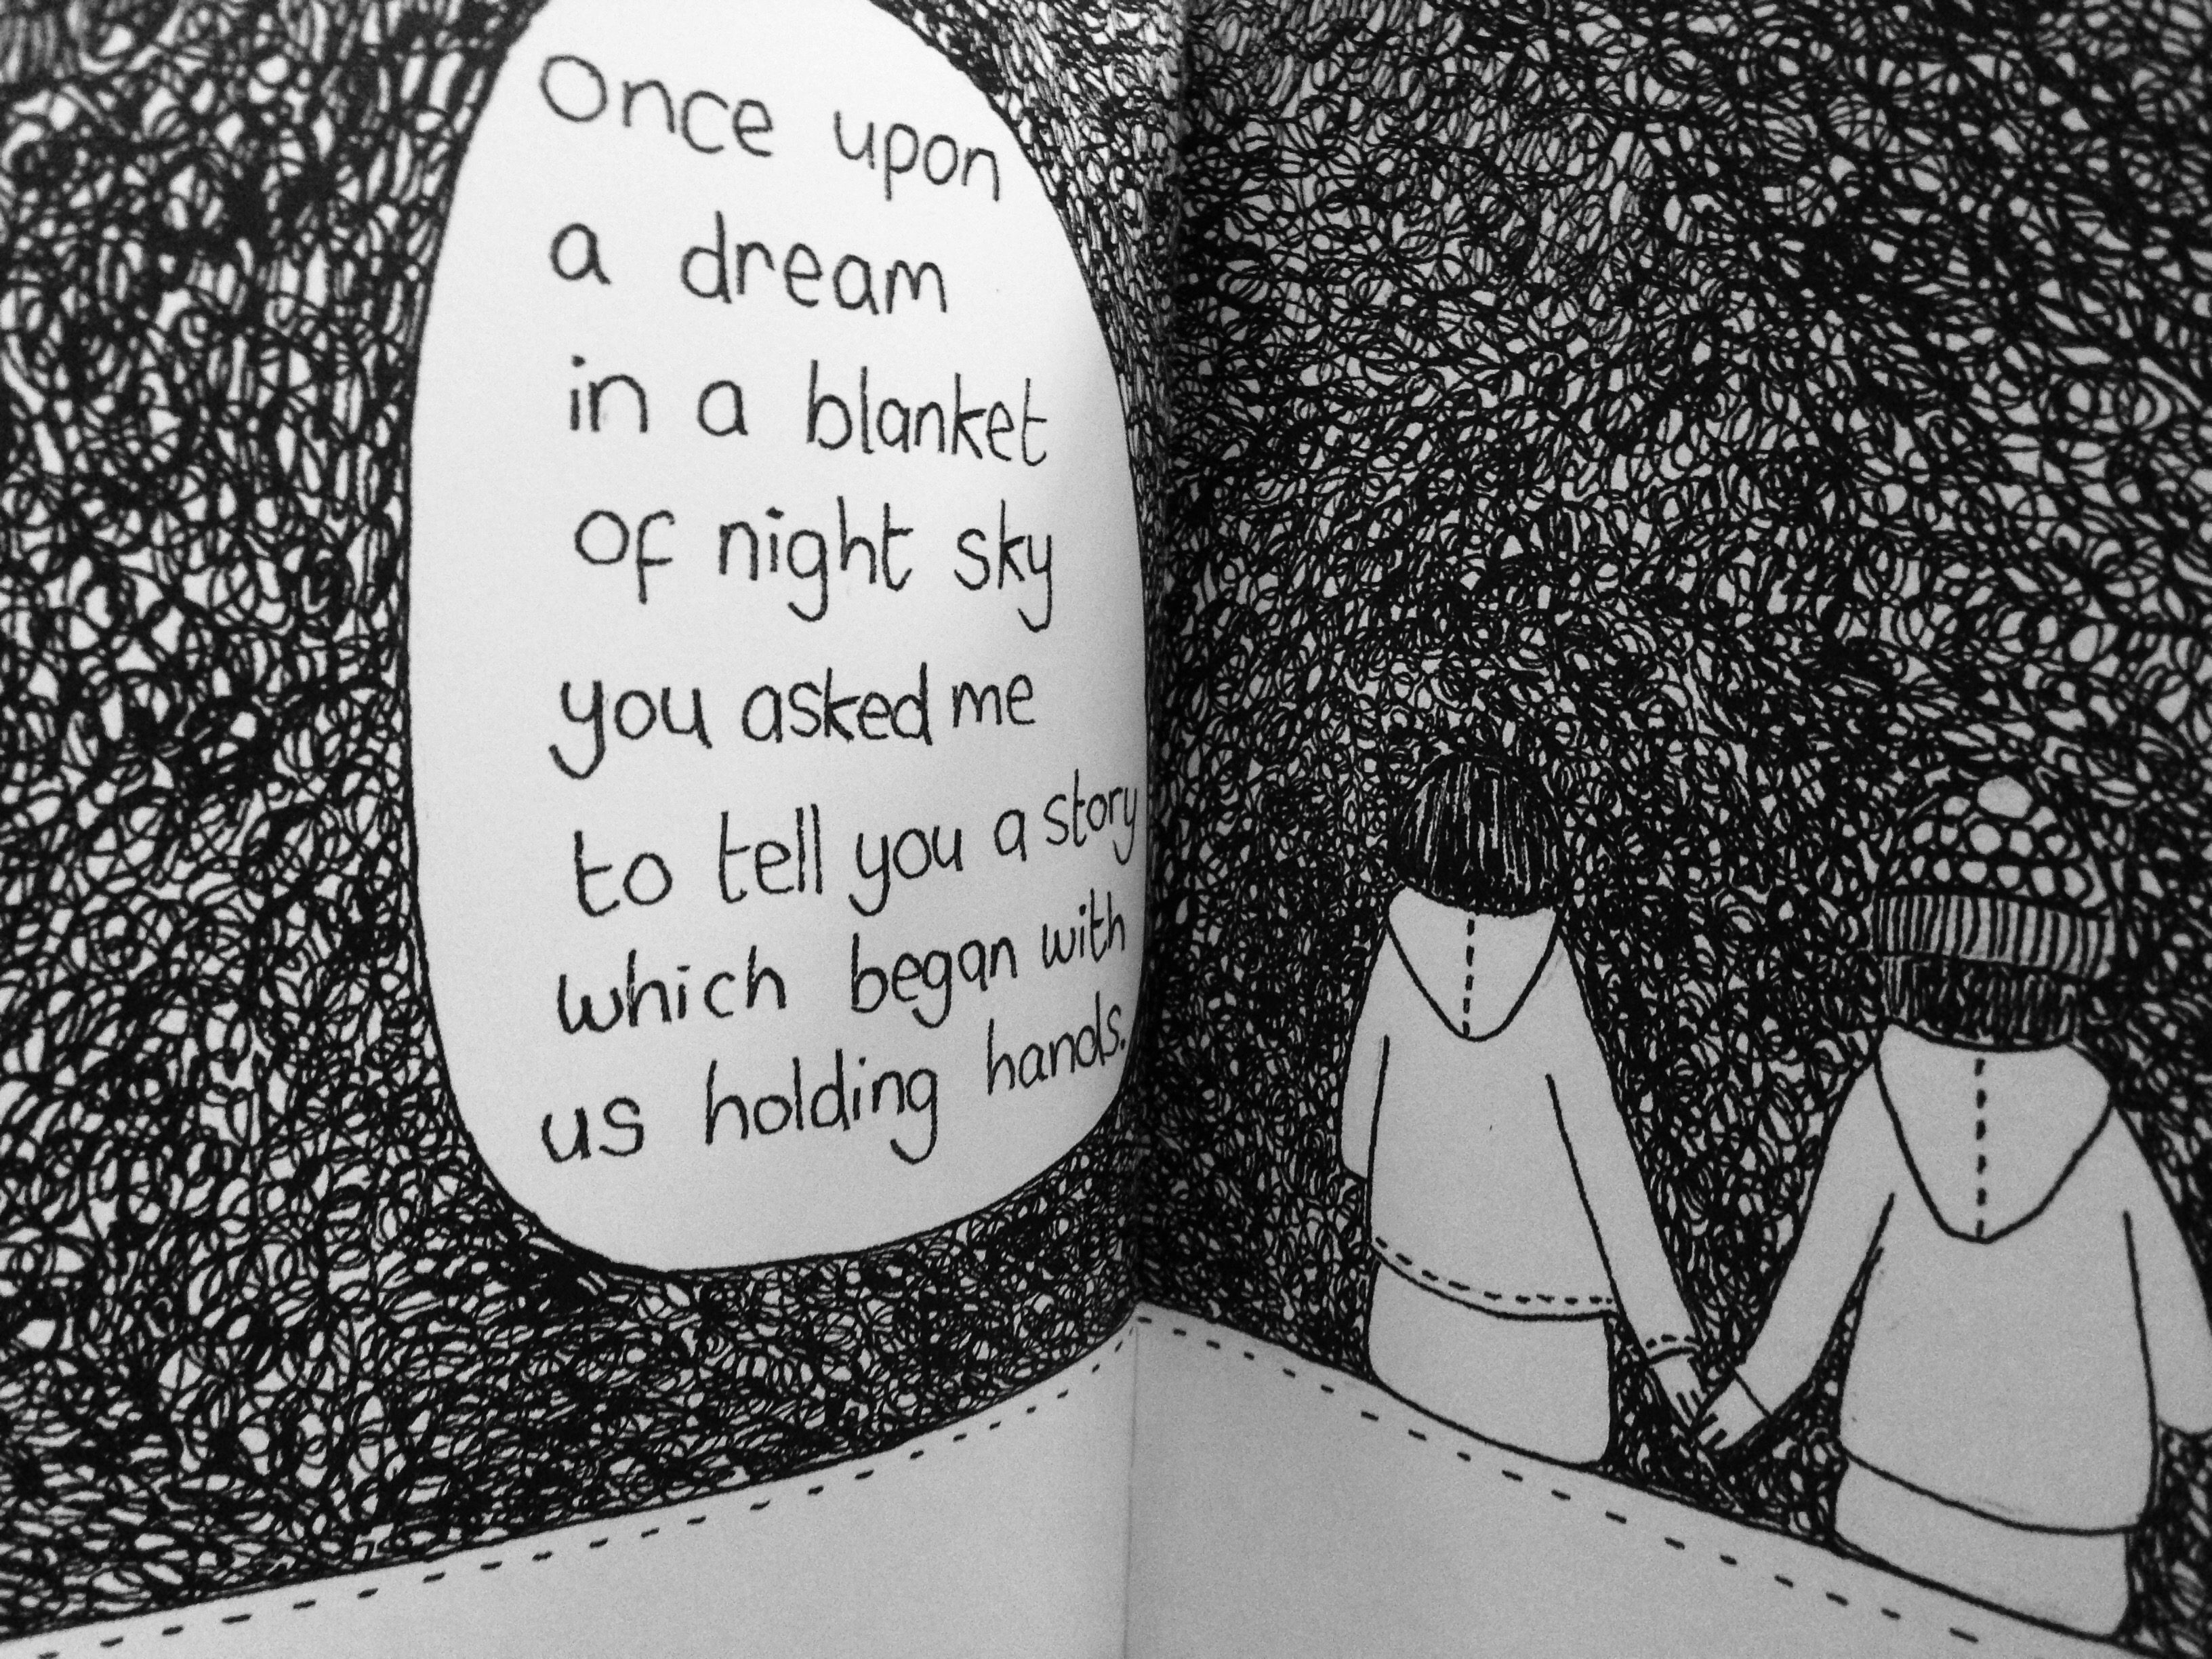 Once upon
a dream
in a blanket
of night sky
you asked me
to tell you a story
which began with
us holding hands.